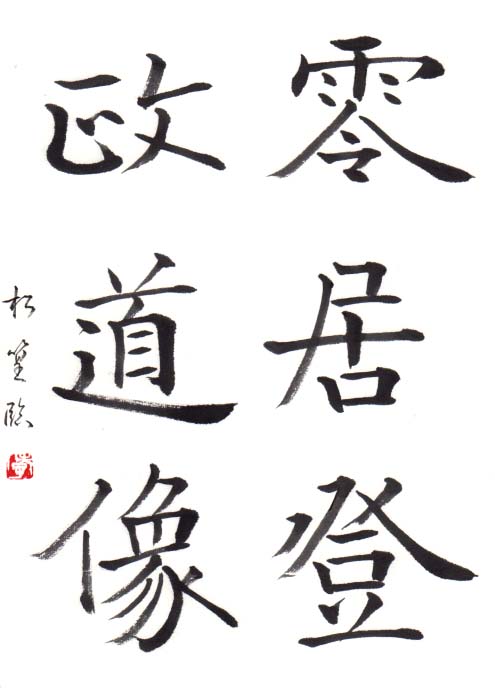 零居登
政道像
松篁臨